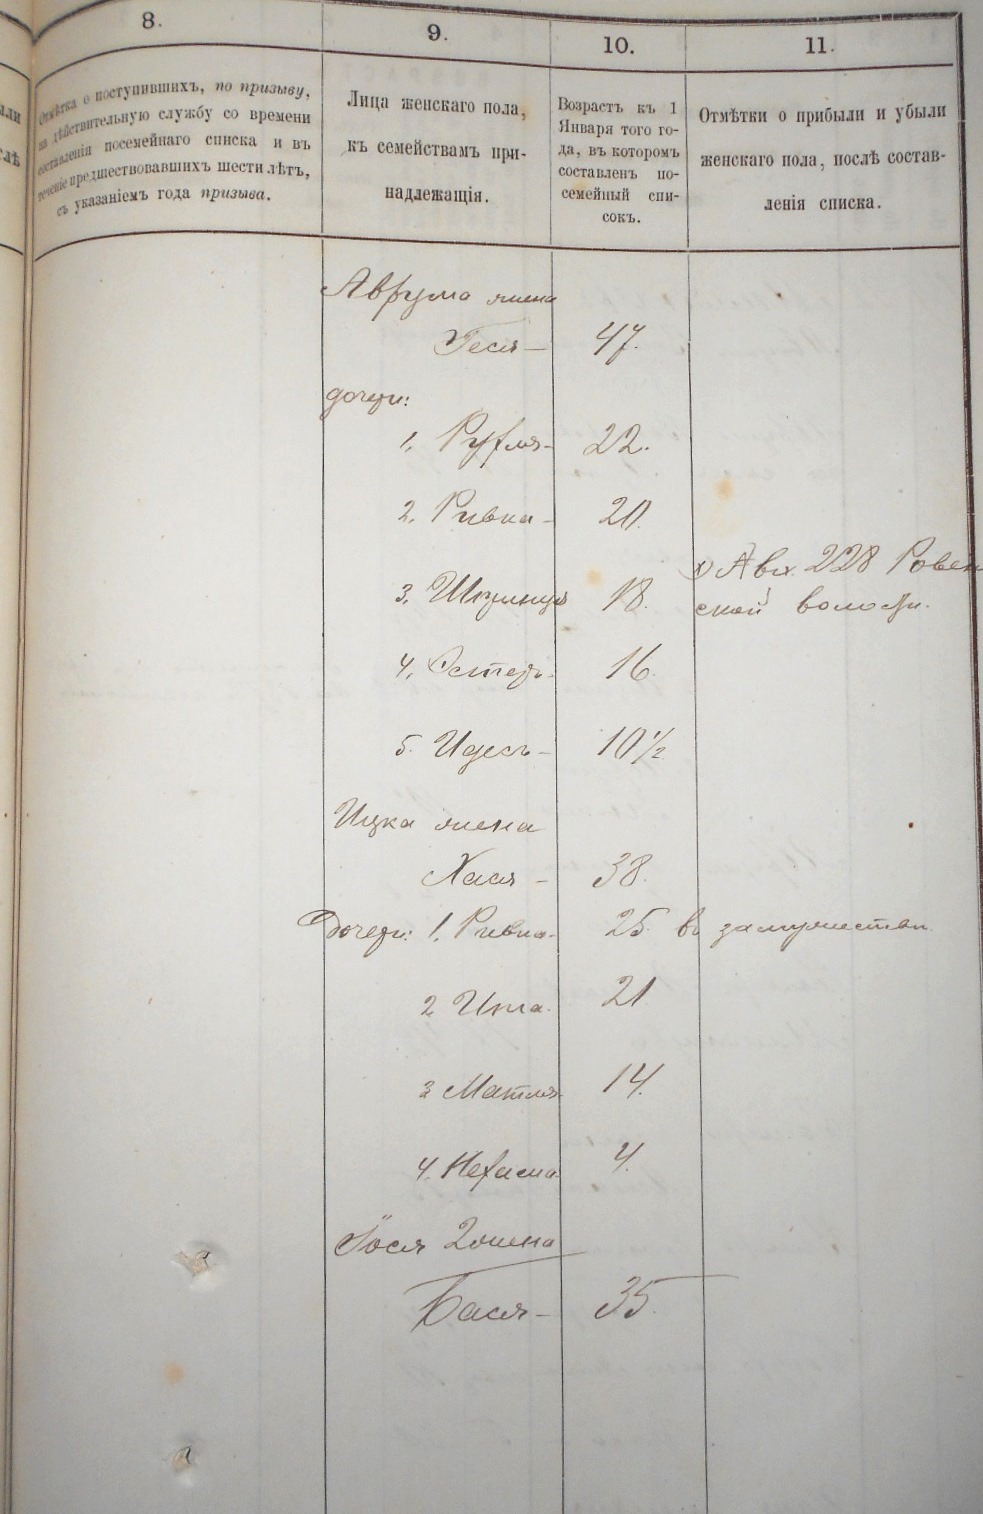 8.
9.
10.
11.
Отмѣтка о поступившихъ, по призыву,
на дѣйствительную службу со времени
составленія посемейнаго списка и въ
теченіе предшествовавшихъ шести лѣтъ,
съ указаніемъ года призыва.
Лица женскаго пола,
къ семействамъ при-
надлежащія.
Возрастъ къ 1
Января того го-
да, въ которомъ
составленъ по-
семейный спи-
сокъ.
Отмѣтки о прибыли и убыли
женскаго пола, послѣ состав-
ленія списка.
Аврума жена
Геся – 47.
дочери:
1. Руфля – 22.
2. Ривка – 20.
3. 18.
228 Ровен
ской волости.
4. Эстеръ – 16.
5. Идесъ – 10 1/2
Ицка жена
Хася – 38.
Дочери: 1. Ривка – 25. въ замужестви
2 Ита. 21
3 Матля 14.
4. Нехама 4.
Іося 2 жена
Бася – 35.